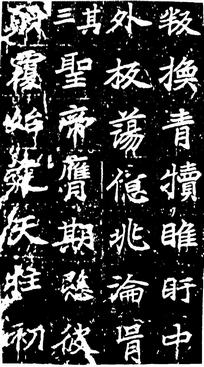 叛換青犢睢盱中
外板蕩億兆淪胥
其三聖帝膺期愍彼
覆始天柱初